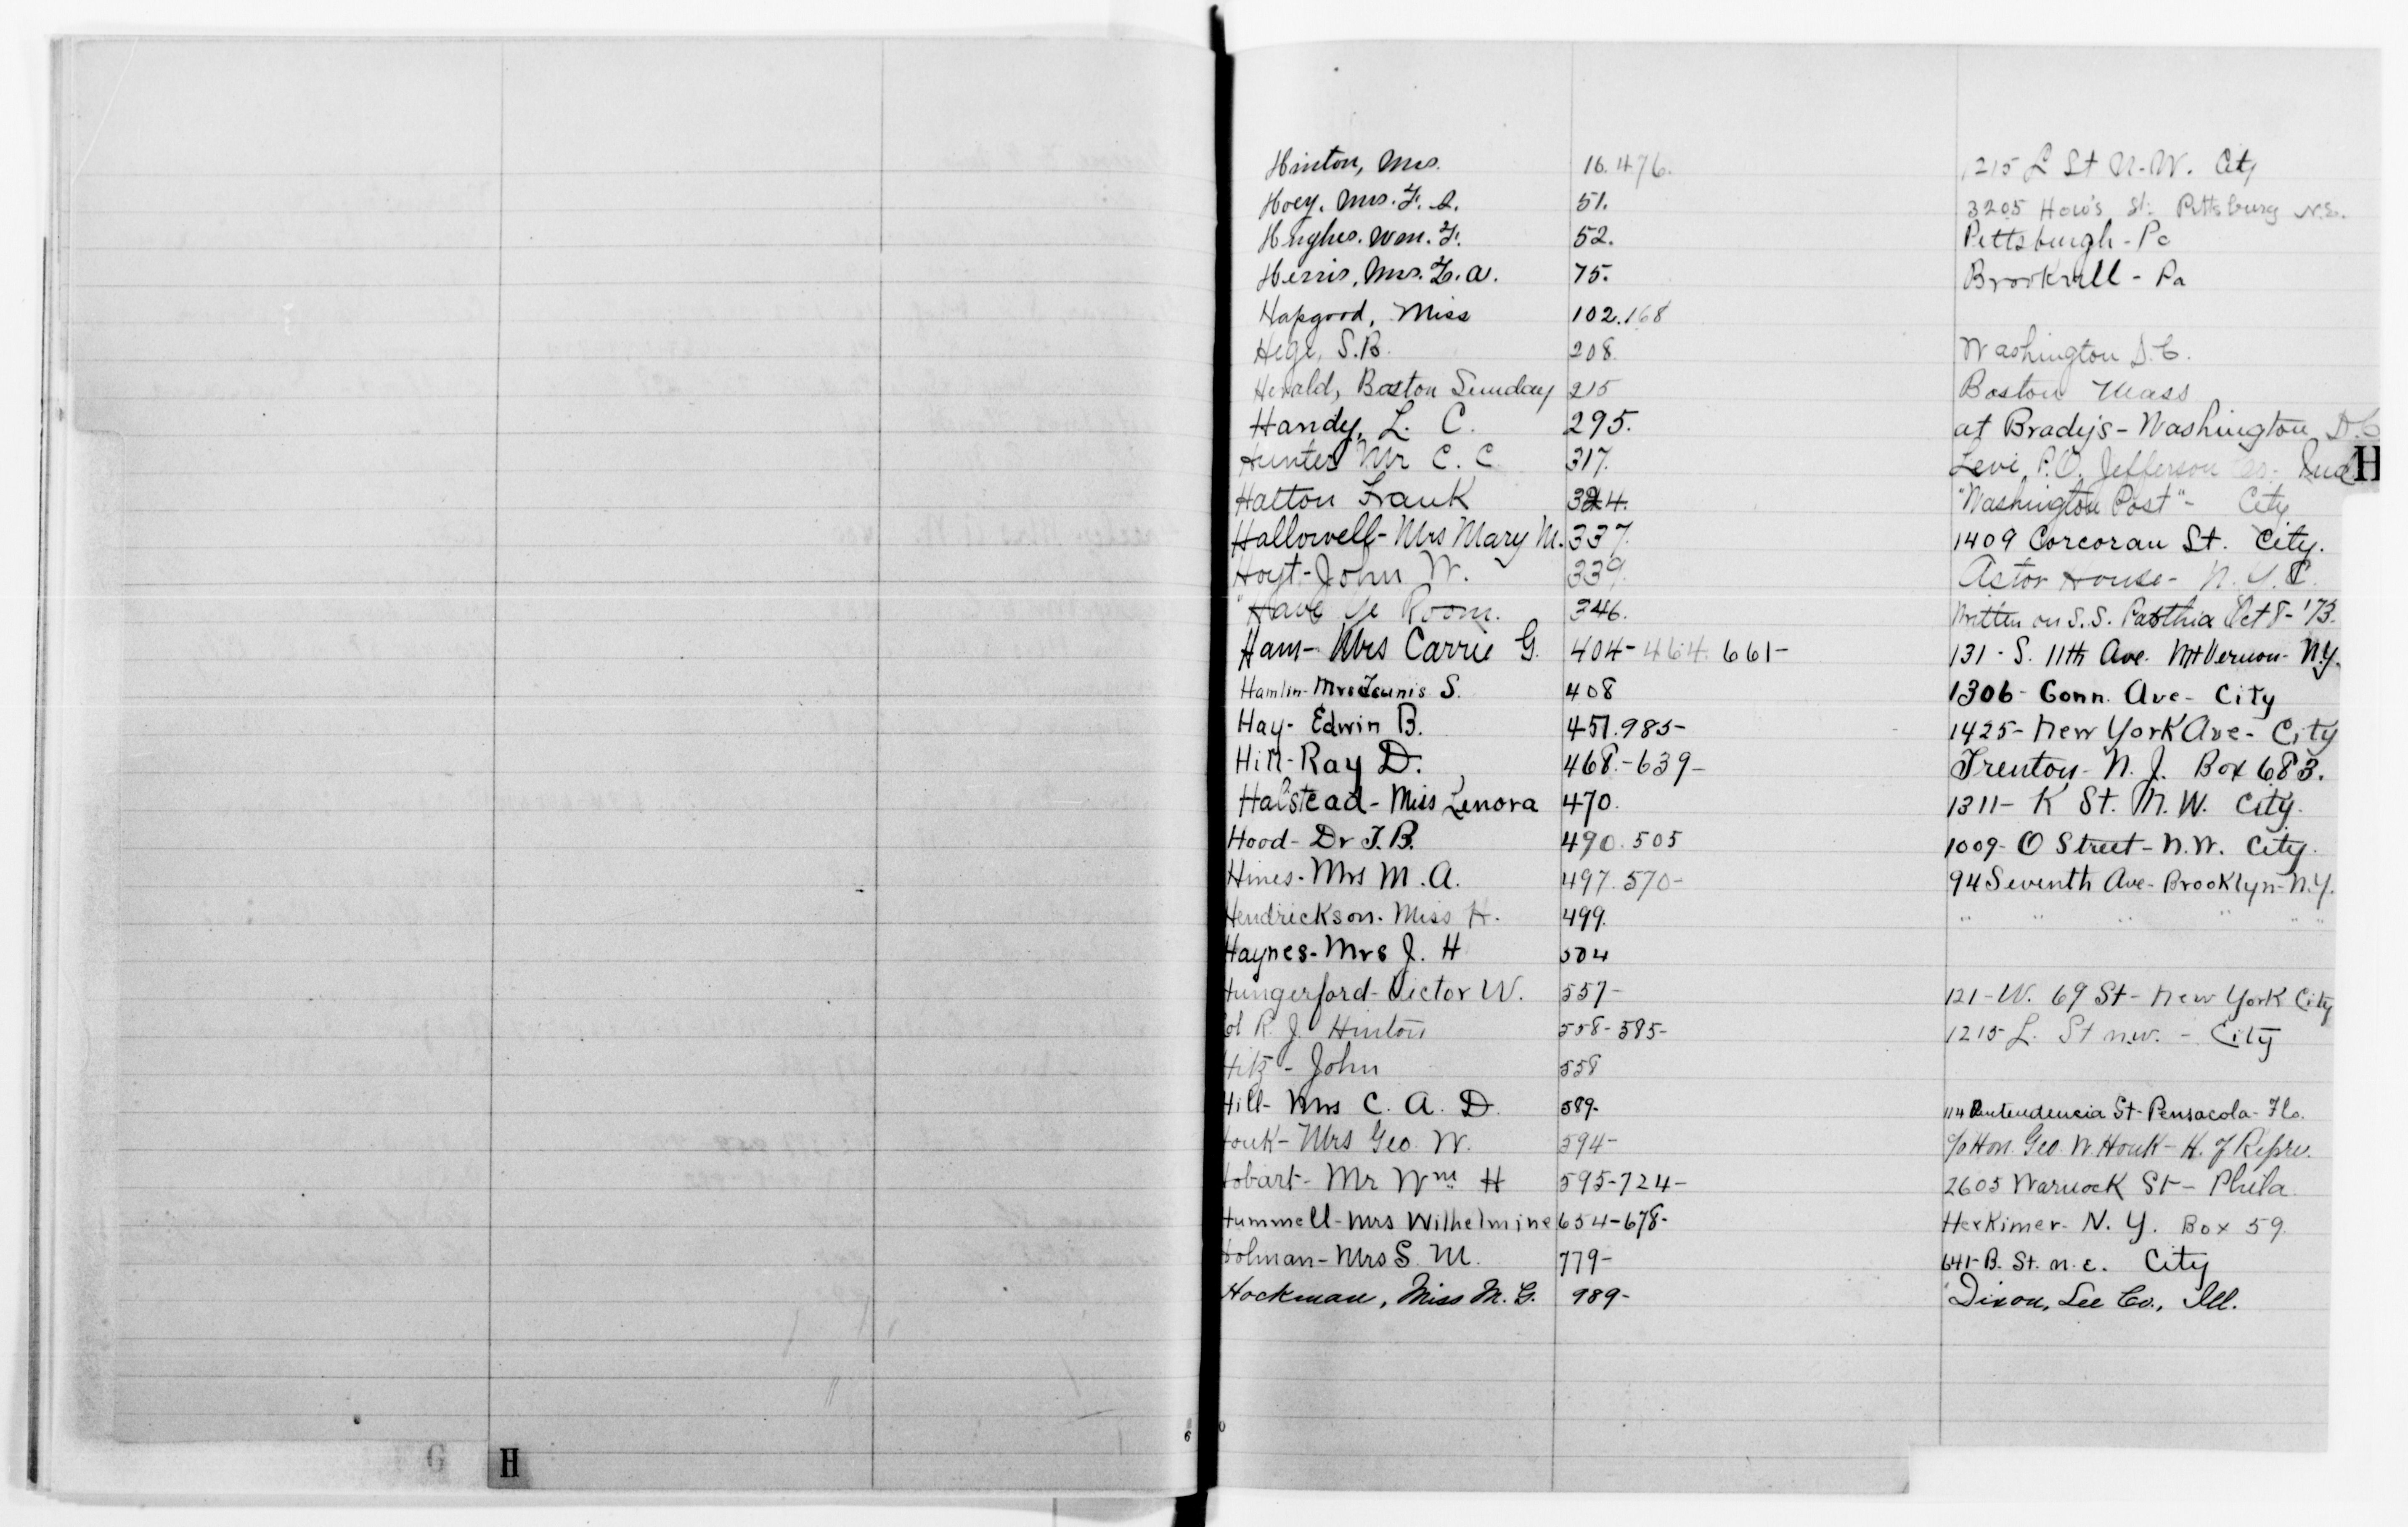 Hinton, Mrs. 16. 476. 1215 L St N.W. City
Hoey, Mrs. F. 51. 3205 St. Pittsburg
Hughes. Wm. F. 52. Pittsburgh - Pa
Herris, Mrs. Z. A. 75. - Pa
Hapgood, Miss 102. 168
Hege, S.B. 208. Washington D.C.
Herald, Boston Sunday 215 Boston Mass
Handy, L. C. 295. at Brady's - Washington D.C
Hunter Mr C. C. 317. Levi, P.O. Jefferson Co. Ind
H
Hatton Frank 324. "Washington Post" - City
Hallowell - Mrs Mary M. 337. 1409 Corcoran St. City.
Hoyt - John W. 339. Astor House - N.Y.C.
"Have Ye Room. 346. Written on S.S. Parthia Oct 8 - '73.
Ham - Mrs Carrie G. 404 - 464. 661 - 131 - S. 11th Ave. Mt Vernon - N.Y.
Hamlin - Mrs Teunis S. 408 1306 - Conn. Ave - City
Hay - Edwin B. 451. 985 - 1425 - New York Ave - City
Hill - Ray D. 468. - 639 - Trenton - N. J. Box 683.
Halstead - Miss Lenora 470. 1311 - K St. N. W. City.
Hood - Dr T. B. 490. 505 1009 - O Street - N.W. City.
Hines - Mrs M. A. 497. 570 - 94 Seventh Ave - Brooklyn - N.Y.
Hendrickson - Miss H. 499. " " " " " "
Haynes - Mrs J. H 504
Hungerford - Victor W. 557 - 121 - W. 69 St - New York City
Col R. J. Hinton 558 - 585 - 1215 L. St n.w. - City
Hitz - John 558
Hill - Mrs C. A. D. 589 - 114 Intendencia St - Pensacola - Fla.
Houk - Mrs Geo. W. 594 - c/o Hon. Geo. W. Houk - H. of Repre.
Hobart - Mr Wm H 595 - 724 - 2605 Warnock St - Phila.
Hummell - Mrs Wilhelmine 654 - 678 - Herkimer - N. Y. Box 59.
Holman - Mrs S. M. 779 - 641 - B. St. n. e. City
Hockman, Miss M. G. 989 - Dixon, Lee Co., Ill.
G H